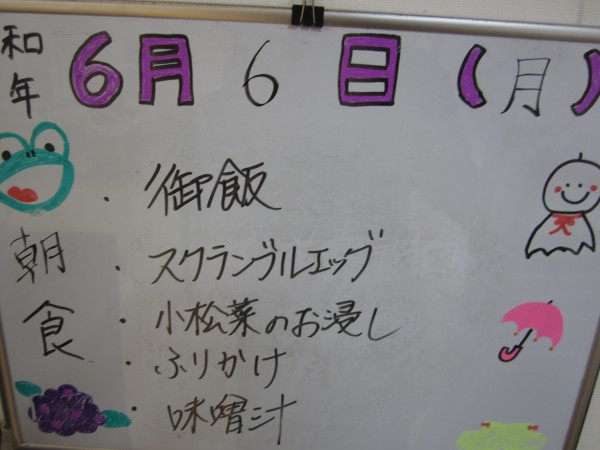 和年
6月6日(月)
朝食
・御飯
・スクランブルエッグ
・小松菜のお浸し
・ふりかけ
・味噌汁